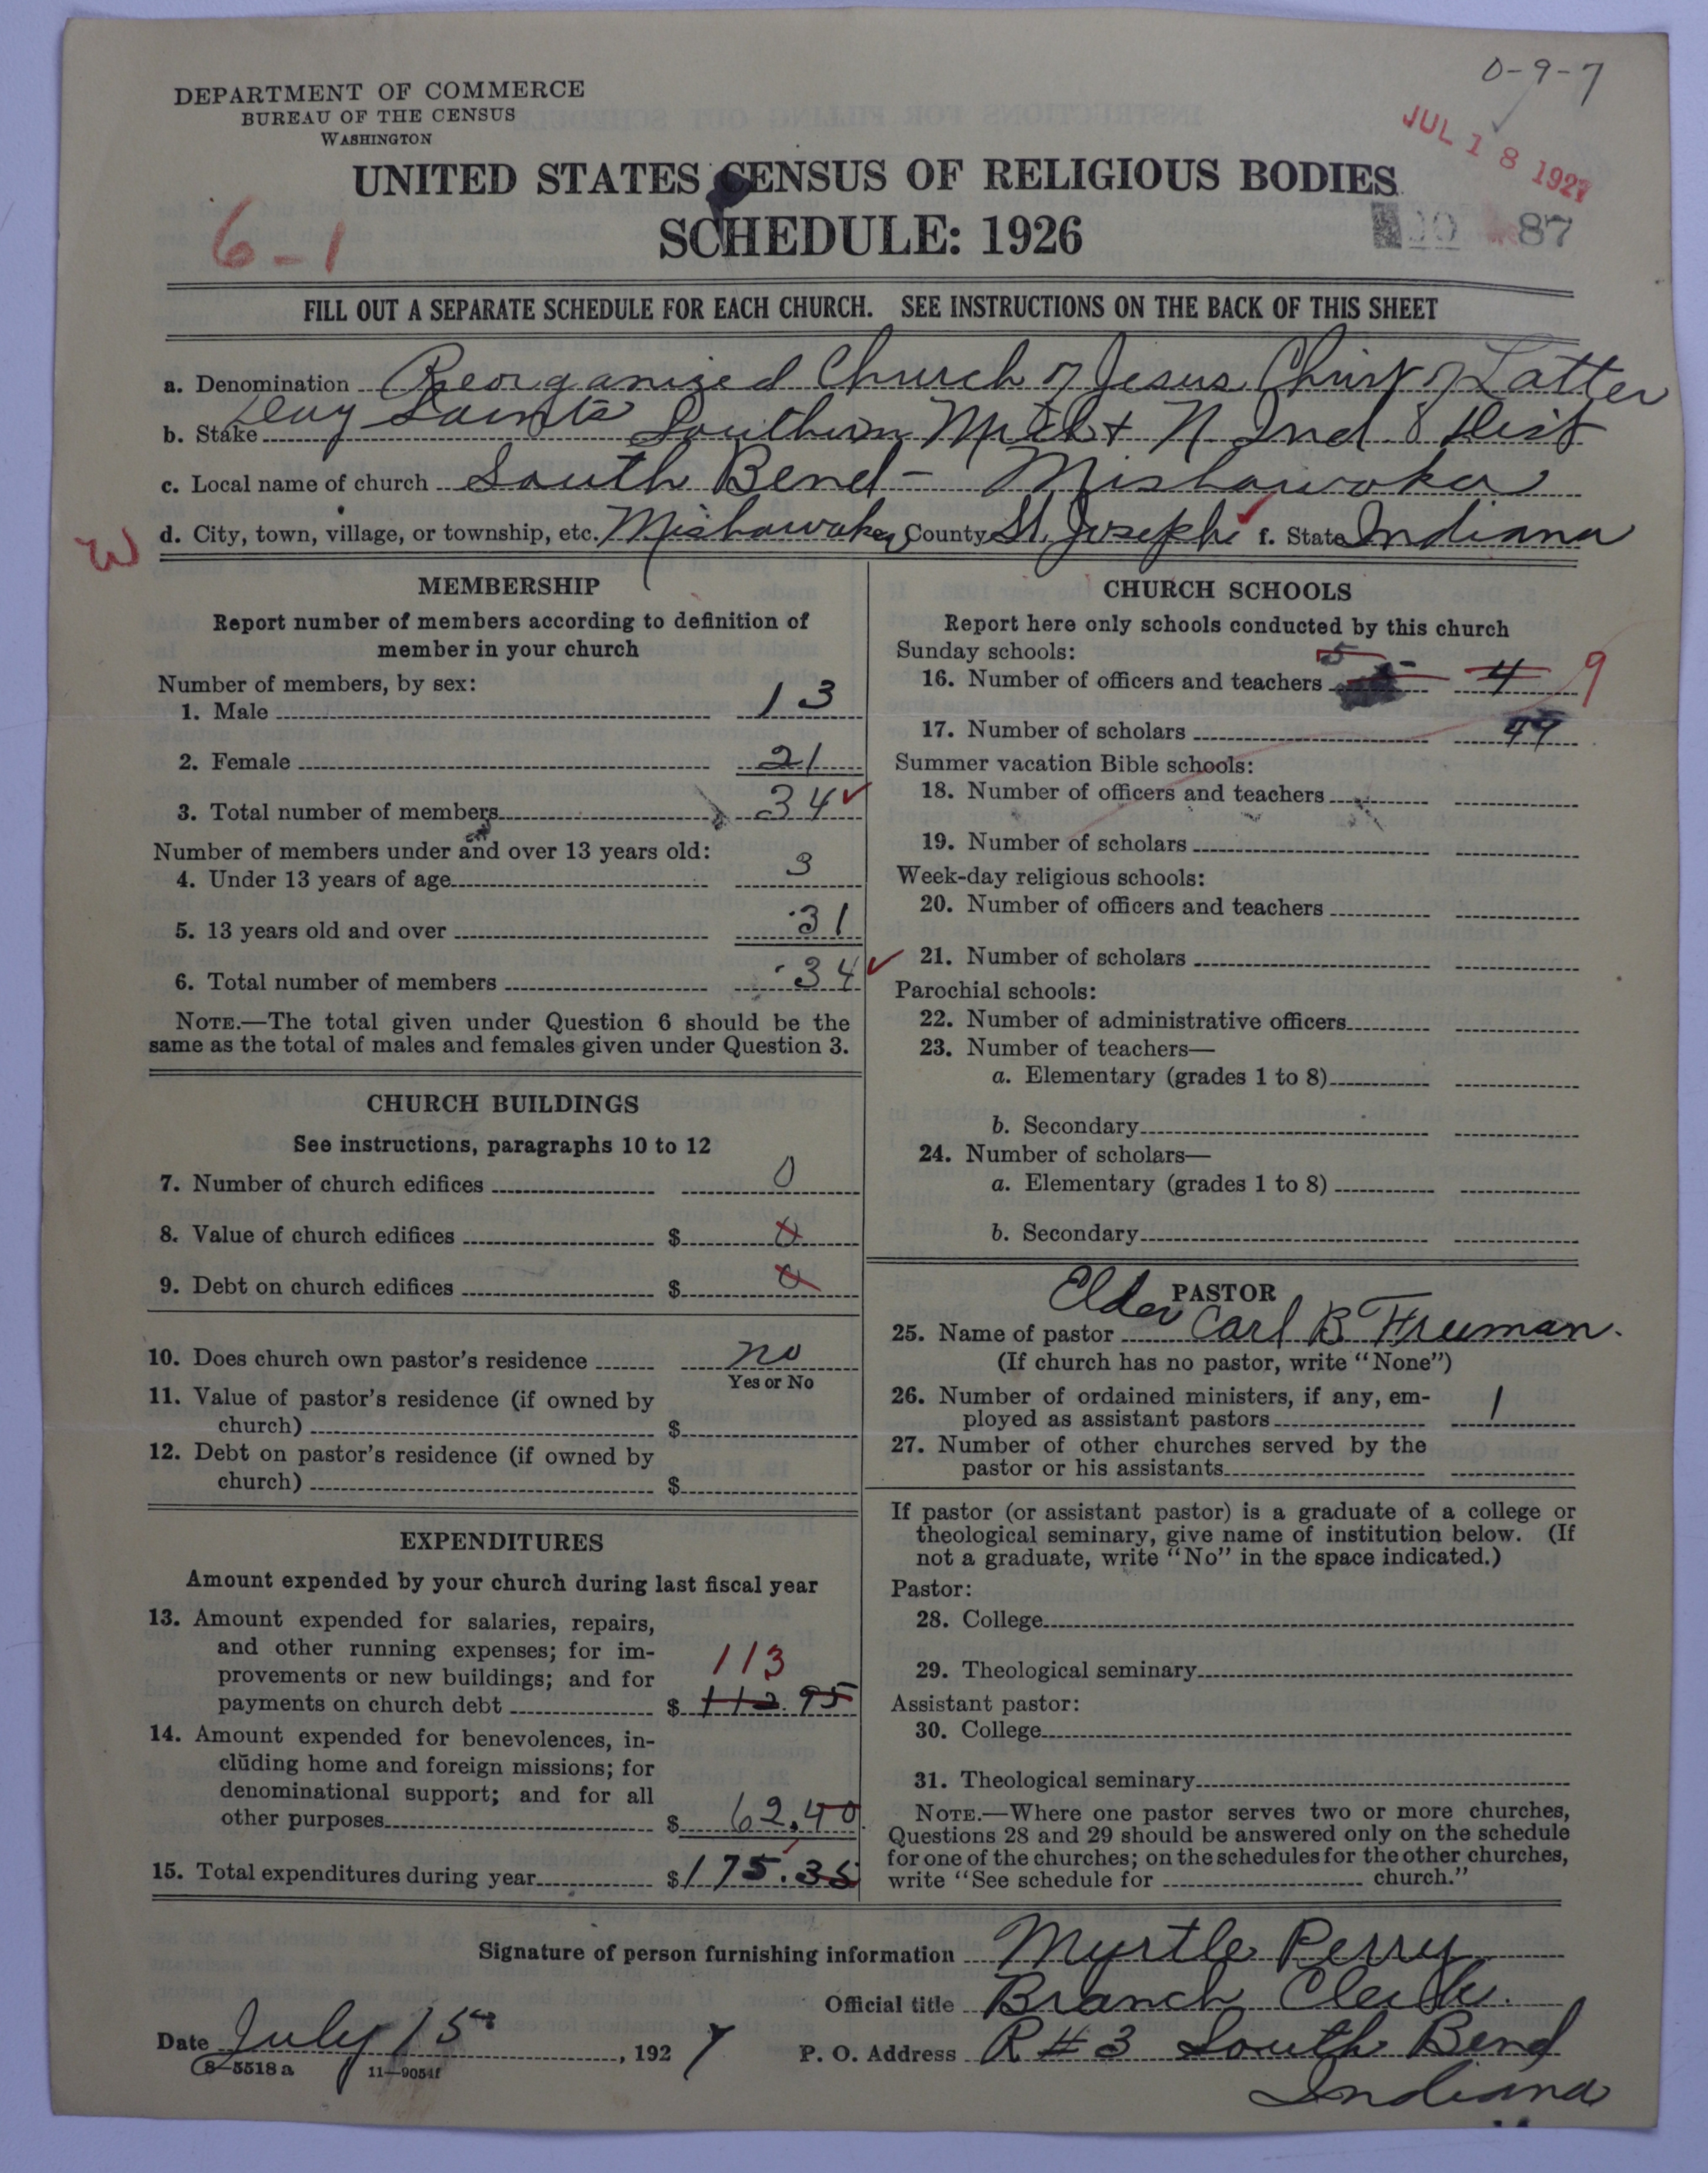 0-9-7
DEPARTMENT OF COMMERCE
BUREAU OF THE CENSUS
WASHINGTON
JUL 18 1927
UNITED STATES CENSUS OF RELIGIOUS BODIES
6-1
SCHEDULE: 1926
87
FILL OUT A SEPARATE SCHEDULE FOR EACH CHURCH. SEE INSTRUCTIONS ON THE BACK OF THIS SHEET
a. Denomination Reorganized Church of Jesus Christ of Latter
Day Saints
b. Stake Southern Mich + N Ind Dist
c. Local name of church South Bend - Mishawaka
W d. City, town, village, or township, etc. Mishawaka County St. Joseph f. State Indiana
MEMBERSHIP
Report number of members according to definition of
member in your church
Number of members, by sex:
1. Male 13
2. Female 21
3. Total number of members 34
Number of members under and over 13 years old:
4. Under 13 years of age 3
5. 13 years old and over 31
6. Total number of members 34
NOTE.—The total given under Question 6 should be the
same as the total of males and females given under Question 3.
CHURCH BUILDINGS
See instructions, paragraphs 10 to 12
7. Number of church edifices 0
8. Value of church edifices $ 0
9. Debt on church edifices $ 0
10. Does church own pastor's residence no
Yes or No
11. Value of pastor's residence (if owned by
church) $
12. Debt on pastor's residence (if owned by
church) $
EXPENDITURES
Amount expended by your church during last fiscal year
13. Amount expended for salaries, repairs,
and other running expenses; for im-
provements or new buildings; and for 113
payments on church debt $ 112.95
14. Amount expended for benevolences, in-
cluding home and foreign missions; for
denominational support; and for all
other purposes $ 62.40
15. Total expenditures during year $175.35
CHURCH SCHOOLS
Report here only schools conducted by this church
Sunday schools:
5
16. Number of officers and teachers 4 9
17. Number of scholars
Summer vacation Bible schools:
18. Number of officers and teachers
19. Number of scholars
Week-day religious schools:
20. Number of officers and teachers
21. Number of scholars
Parochial schools:
22. Number of administrative officers
23. Number of teachers—
a. Elementary (grades 1 to 8)
b. Secondary
24. Number of scholars—
a. Elementary (grades 1 to 8)
b. Secondary
PASTOR
25. Name of pastor Elder Carl B Freeman.
(If church has no pastor, write "None")
26. Number of ordained ministers, if any, em-
ployed as assistant pastors 1
27. Number of other churches served by the
pastor or his assistants
If pastor (or assistant pastor) is a graduate of a college or
theological seminary, give name of institution below. (If
not a graduate, write "No" in the space indicated.)
Pastor:
28. College
29. Theological seminary
Assistant pastor:
30. College
31. Theological seminary
NOTE.—Where one pastor serves two or more churches,
Questions 28 and 29 should be answered only on the schedule
for one of the churches; on the schedules for the other churches,
write "See schedule for church."
Signature of person furnishing information Myrtle Perry
Official title Branch Clerk.
Date July 15, 1927
P. O. Address R #3 South Bend
Indiana
8-5518 a 11-9054f